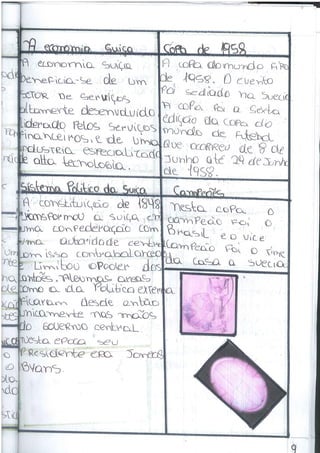 A economia Suíça
A economia Suíça
beneficia-se de um
setor de serviços
altamente desenvolvido
liderado pelos serviços
financeiros, e de uma
industria especializada
de alta tecnologia.
Sistema Politico da Suíça
A constituição de 1848
transformou a suiça, em
uma confederação com
uma autoridade central
com isso contrabalanceo
e limitou o poder dos
cantões. Algumas areas
como a da Politica externa
ficaram desde então
unicamente nas mãos
do governo central
Nesta epoca seu
Presidente era Jonas
Copa de 1958
A copa do mundo FIFA
de 1958. O evento
foi sediado na Suecia
A copa foi a Sexta
edição da copa do
mundo de Futebol
Que ocorreu de 8 de
Junho até 29 de Junho
de 1958.
Campeões
nesta copa o
campeão foi o
Brasil e o vice
campeão foi o time
da casa a suecia
9